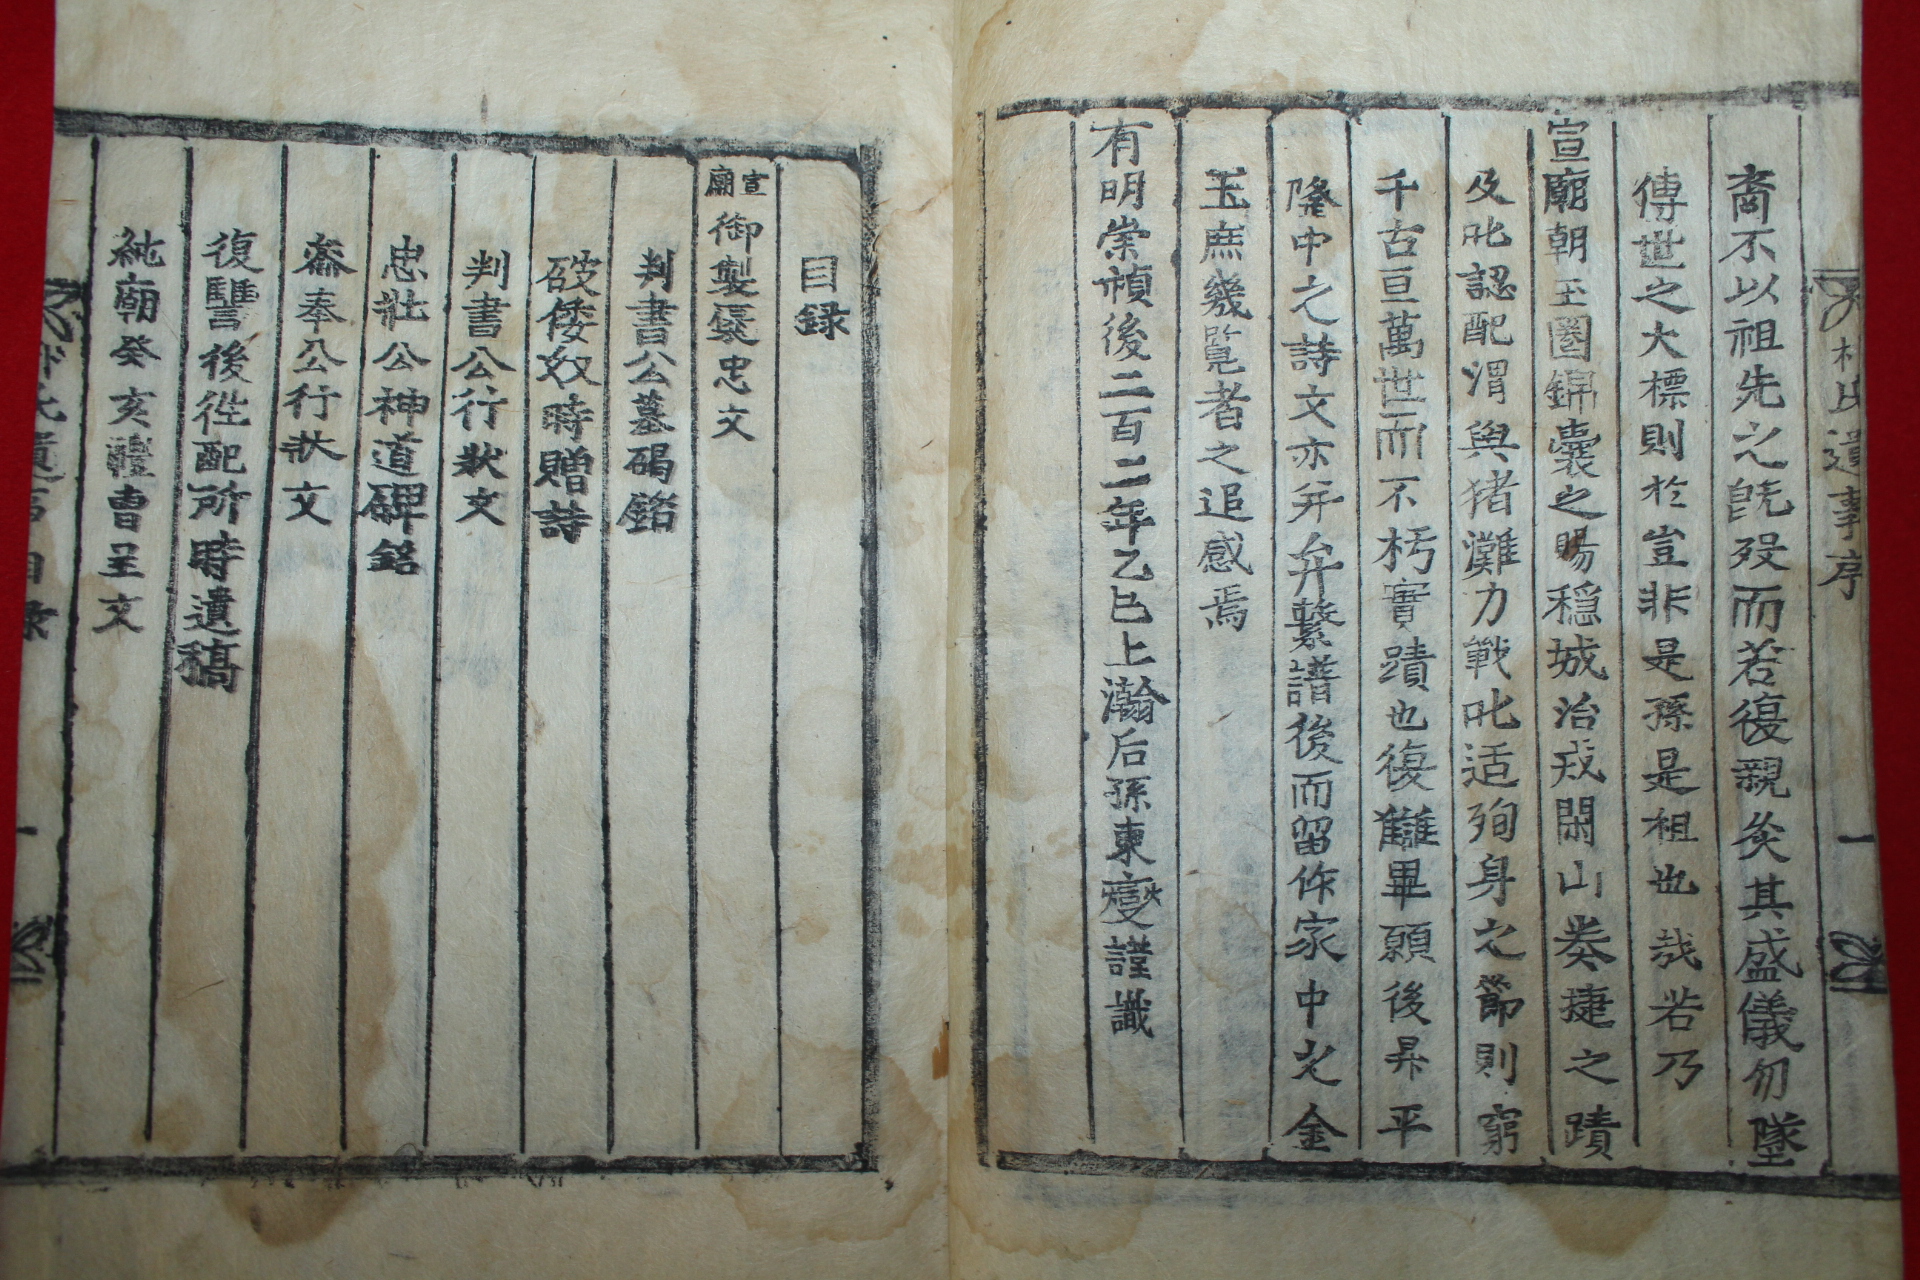 朴氏遺事序
一
裔不以祖先之旣歿而若復親矣其盛儀勿墜
傳世之大標則於豈非是孫是祖也哉若乃
宣廟朝玉圈錦囊之賜穩城治戎閑山奏捷之蹟
及叱認配渭與猪灘力戰叱适殉身之節則窮
千古亘萬世而不朽實蹟也復讎畢願後昇平
隆中之詩文亦并弁繫譜後而留作家中光金
玉庶幾覽者之追感焉
有明崇禎後二百二年乙巳上瀚后孫東燮謹識
目录
宣廟御製褒忠文
判書公墓碣銘
破倭奴時贈詩
判書公行狀文
忠壯公神道碑銘
奉公行狀文
復讐後徃配所時遺稿
純廟癸亥禮曹呈文
氏遺事目录
一